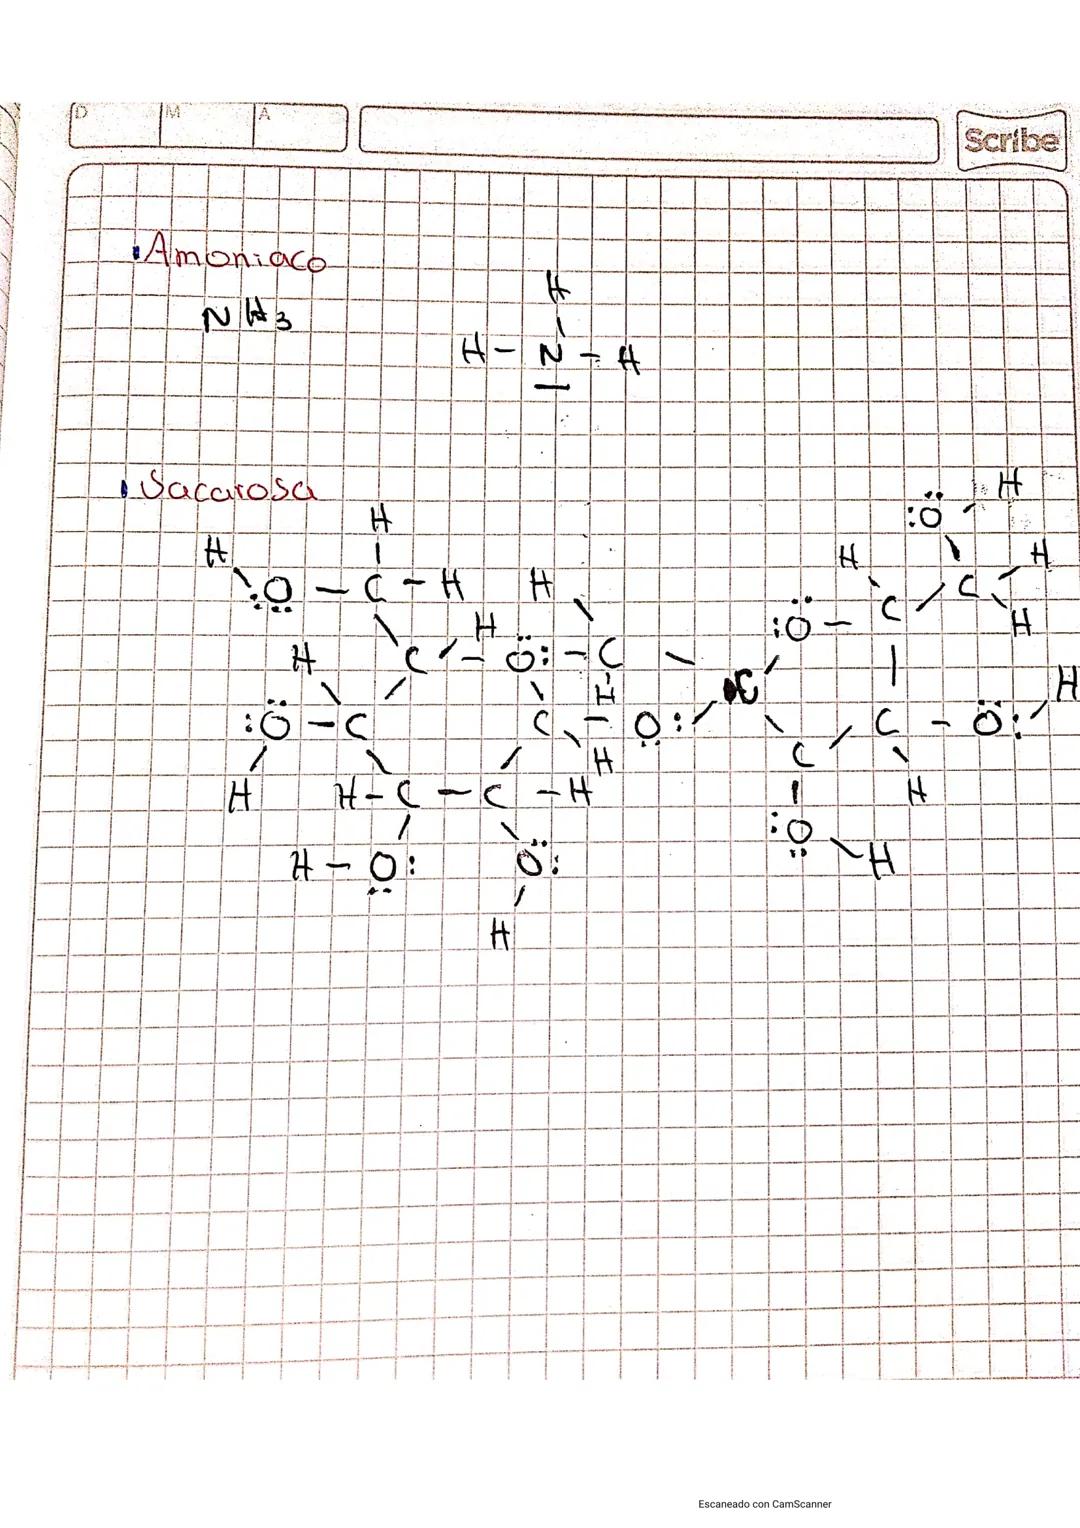 D M A
Scribe
Amoniaco
H
NH3
H - N - H
Sacarosa
H
H
H
:O
H
H
H
O - C - H
H
C
C
:O - C
H
H
H
C - O: - C
H
C
H
:O - C
C - O:
C - O:
H
H
C
H
H
H - C - C - H
H
:O
H - O:
O:
H
H
Escaneado con CamScanner